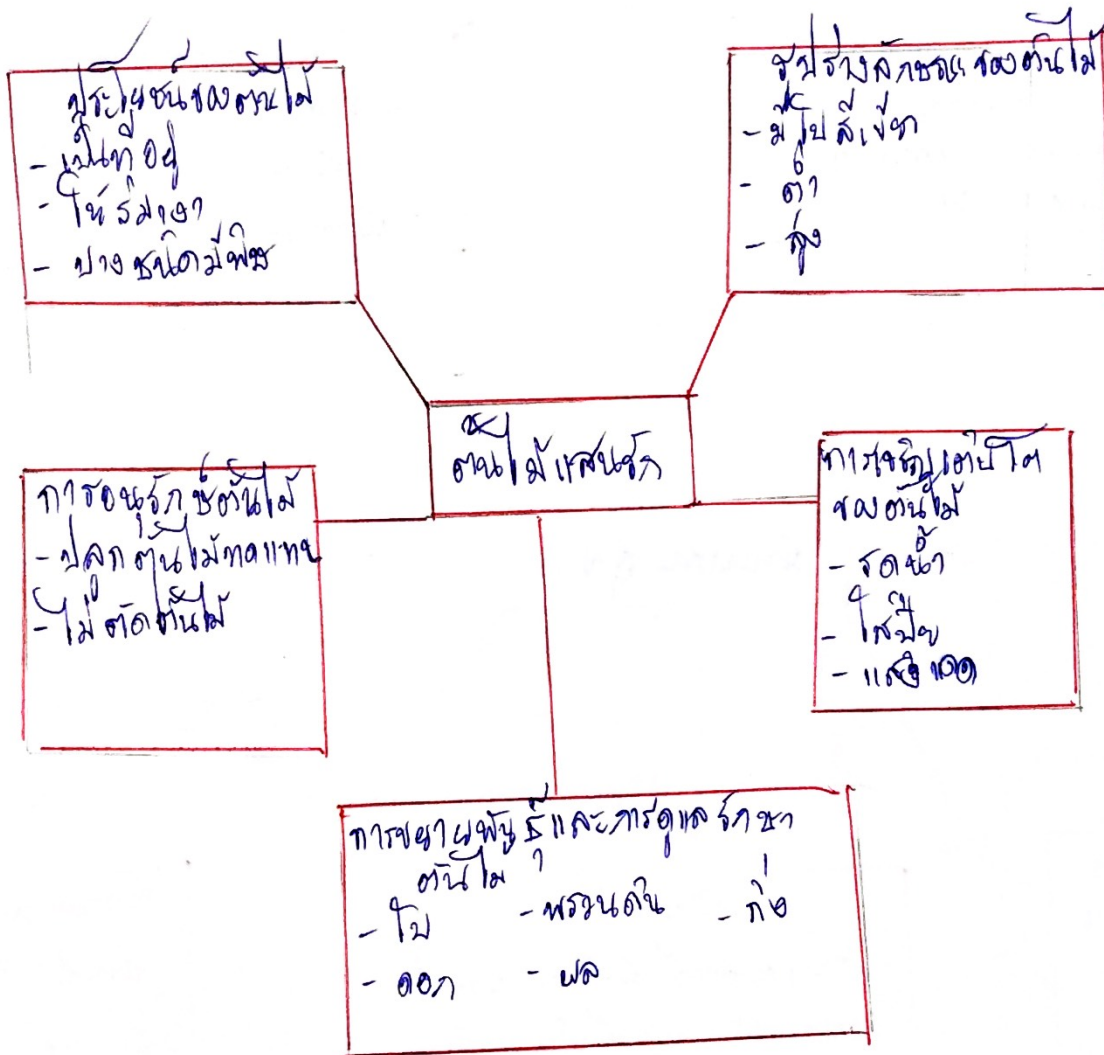 ประโยชน์ของต้นไม้
- เป็นที่อยู่
- ให้ร่มเงา
- บางชนิดมีพิษ
รูปร่างลักษณะของต้นไม้
- มีใบสีเขียว
- ต่ำ
- สูง
ต้นไม้แสนรัก
การอนุรักษ์ต้นไม้
- ปลูกต้นไม้ทดแทน
- ไม่ตัดต้นไม้
การเจริญเติบโต
ของต้นไม้
- รดน้ำ
- ใส่ปุ๋ย
- แสงแดด
การขยายพันธุ์และการดูแลรักษา
ต้นไม้
- ใบ - พรวนดิน - กิ่ง
- ดอก - ผล